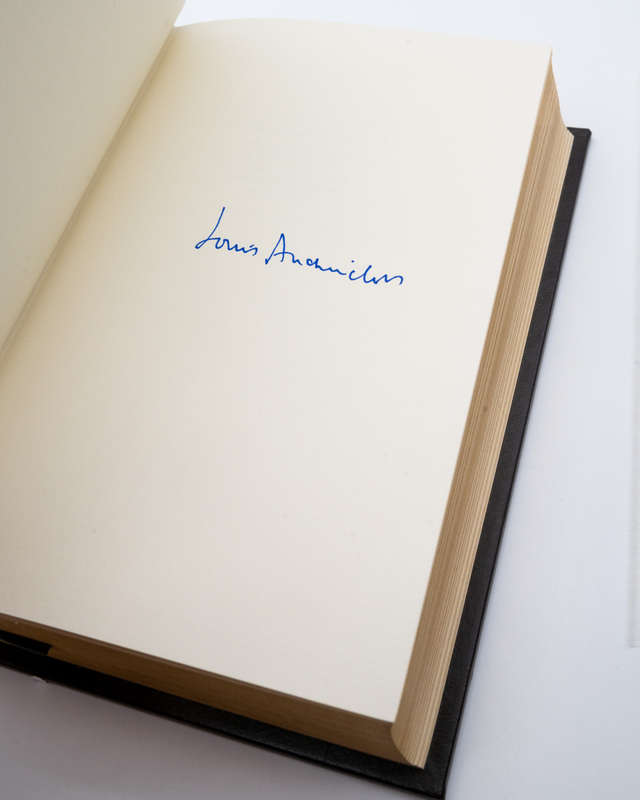 Louis Auchincloss